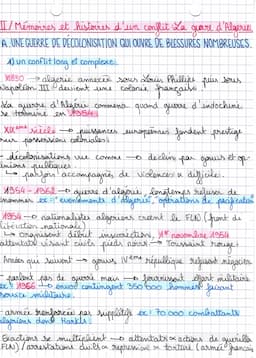 II/ Mémoires et histoires d'un conflit La guerre d'Algérie
A. UNE GUERRE DE DÉCOLONISATION QUI OUVRE DE BLESSURES NOMBREUSES.
1) un conflit long et complexe:
1830 → algérie annexée sous Louis Phillipe puis sous
Napoléon III devient une colonie française
La guerre d'Algérie commence quand guerre d'indochine
se termine en 1954
XIXème siècle → puissances européennes fondent prestige
sur possession coloniales
décolonisations vue comme → déclin par gouv et op-
inions publiques
↳ parfois accompagnés de violences difficile.
1954-1962 → guerre d'algérie longtemps refuser de
nommer ex: "événements d'Algérie", "opérations de pacification"
1954 → nationalistes algériens créent le FLN (front de
libération nationale)
↳ organisent début insurrections, 1er novembre 1954
attentats visant civils pieds noirs → Toussaint rouge
Années qui suivent → gouv IVème république refusent négocier
parlent pas de guerre mais → fournissent effort militaire
ex: 1966 → envoi contingent 350 000 hommes faisant
service militaire.
armée renforcée par supplétifs ex: 70 000 combattants
algériens dont Harkis
Exactions se multiplient → attentats actions de guérilla
FLN / arrestations civils répression torture (armée français